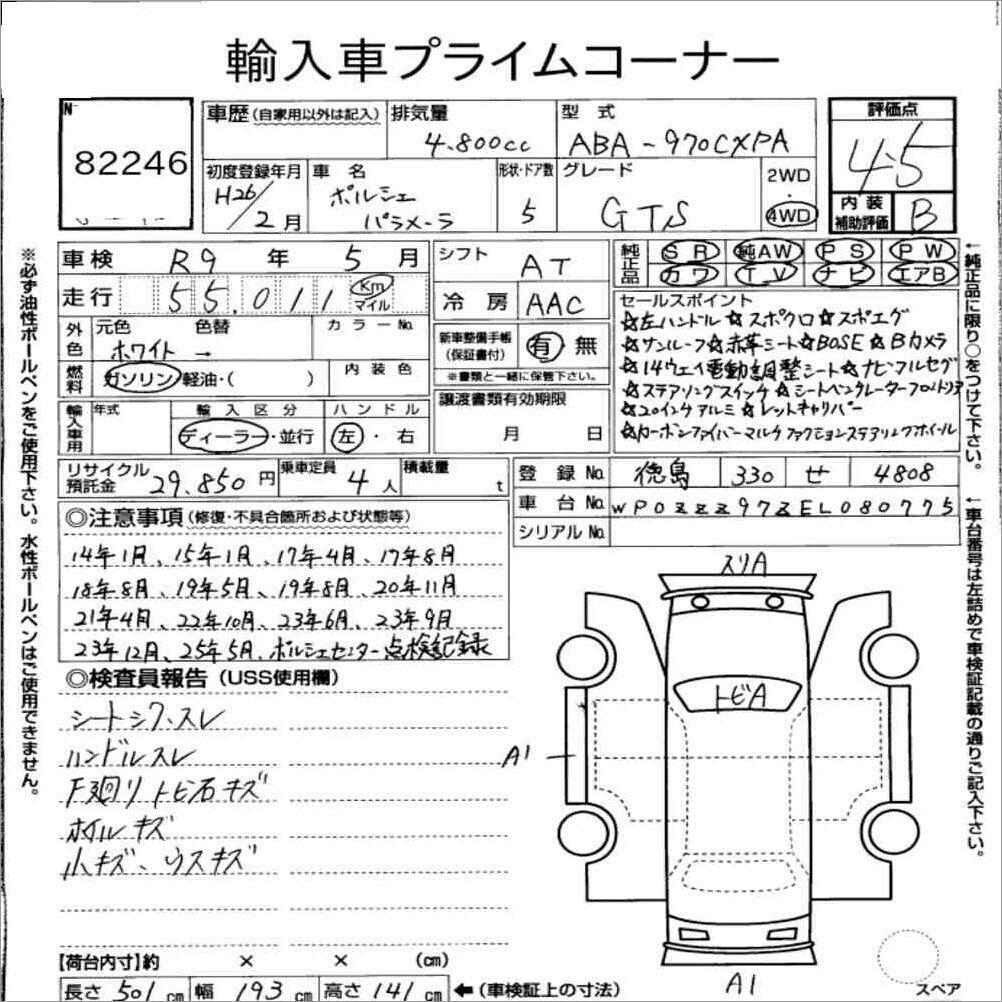 輸入車プライムコーナー
No
82246
車歴(自家用以外は記入) 排気量 4.800cc 型式 ABA-970CXPA
評価点 4.5
初度登録年月 H26/2月 車名 ポルシェ パラメーラ 形状・ドア数 5 グレード GTS 2WD・4WD
内装補助評価 B
車検 R9年5月 シフト AT 純正品 SR 純AW PS PW
カワ TV ナビ エアB
走行 55.011 Km マイル 冷房 AAC
外色 元色 ホワイト 色替 → カラーNo. 新車整備手帳(保証書付) 有 無
※書類と一緒に保管下さい。
燃料 ガソリン・軽油・( ) 内装色
輸入車用 年式 輸入区分 ディーラー・並行 ハンドル 左・右 譲渡書類有効期限 月 日
セールスポイント
☆左ハンドル☆スポクロ☆スポエグ
☆サンルーフ☆赤革シート☆BOSE☆Bカメラ
☆14ウェイ電動調整シート☆ナビフルセグ
☆ステアリングスイッチ☆シートベンチレーターフロントリア
☆20インチアルミ☆レッドキャリパー
☆カーボンファイバーマルチファクションステアリングホイール
リサイクル預託金 29.850円 乗車定員 4人 積載量 t
登録No. 徳島 330 せ 4808
車台No. WP0ZZZ97ZEL080775
シリアルNo.
◎注意事項(修復・不具合箇所および状態等)
14年1月、15年1月、17年4月、17年8月
18年8月、19年5月、19年8月、20年11月
21年4月、22年10月、23年6月、23年9月
23年12月、25年5月、ポルシェセンター点検記録
◎検査員報告(USS使用欄)
シートシワ、スレ
ハンドルスレ
下廻りトビ石キズ
ホイルキズ
小キズ、ウスキズ
スリA
トビA
A1
A1
スペア
【荷台内寸】約 × × (cm)
長さ 501cm 幅 193cm 高さ 141cm ←(車検証上の寸法)
※必ず油性ボールペンをご使用下さい。水性ボールペンはご使用できません。
←純正品に限り○をつけて下さい。
←車台番号は左詰めで車検証記載の通りご記入下さい。